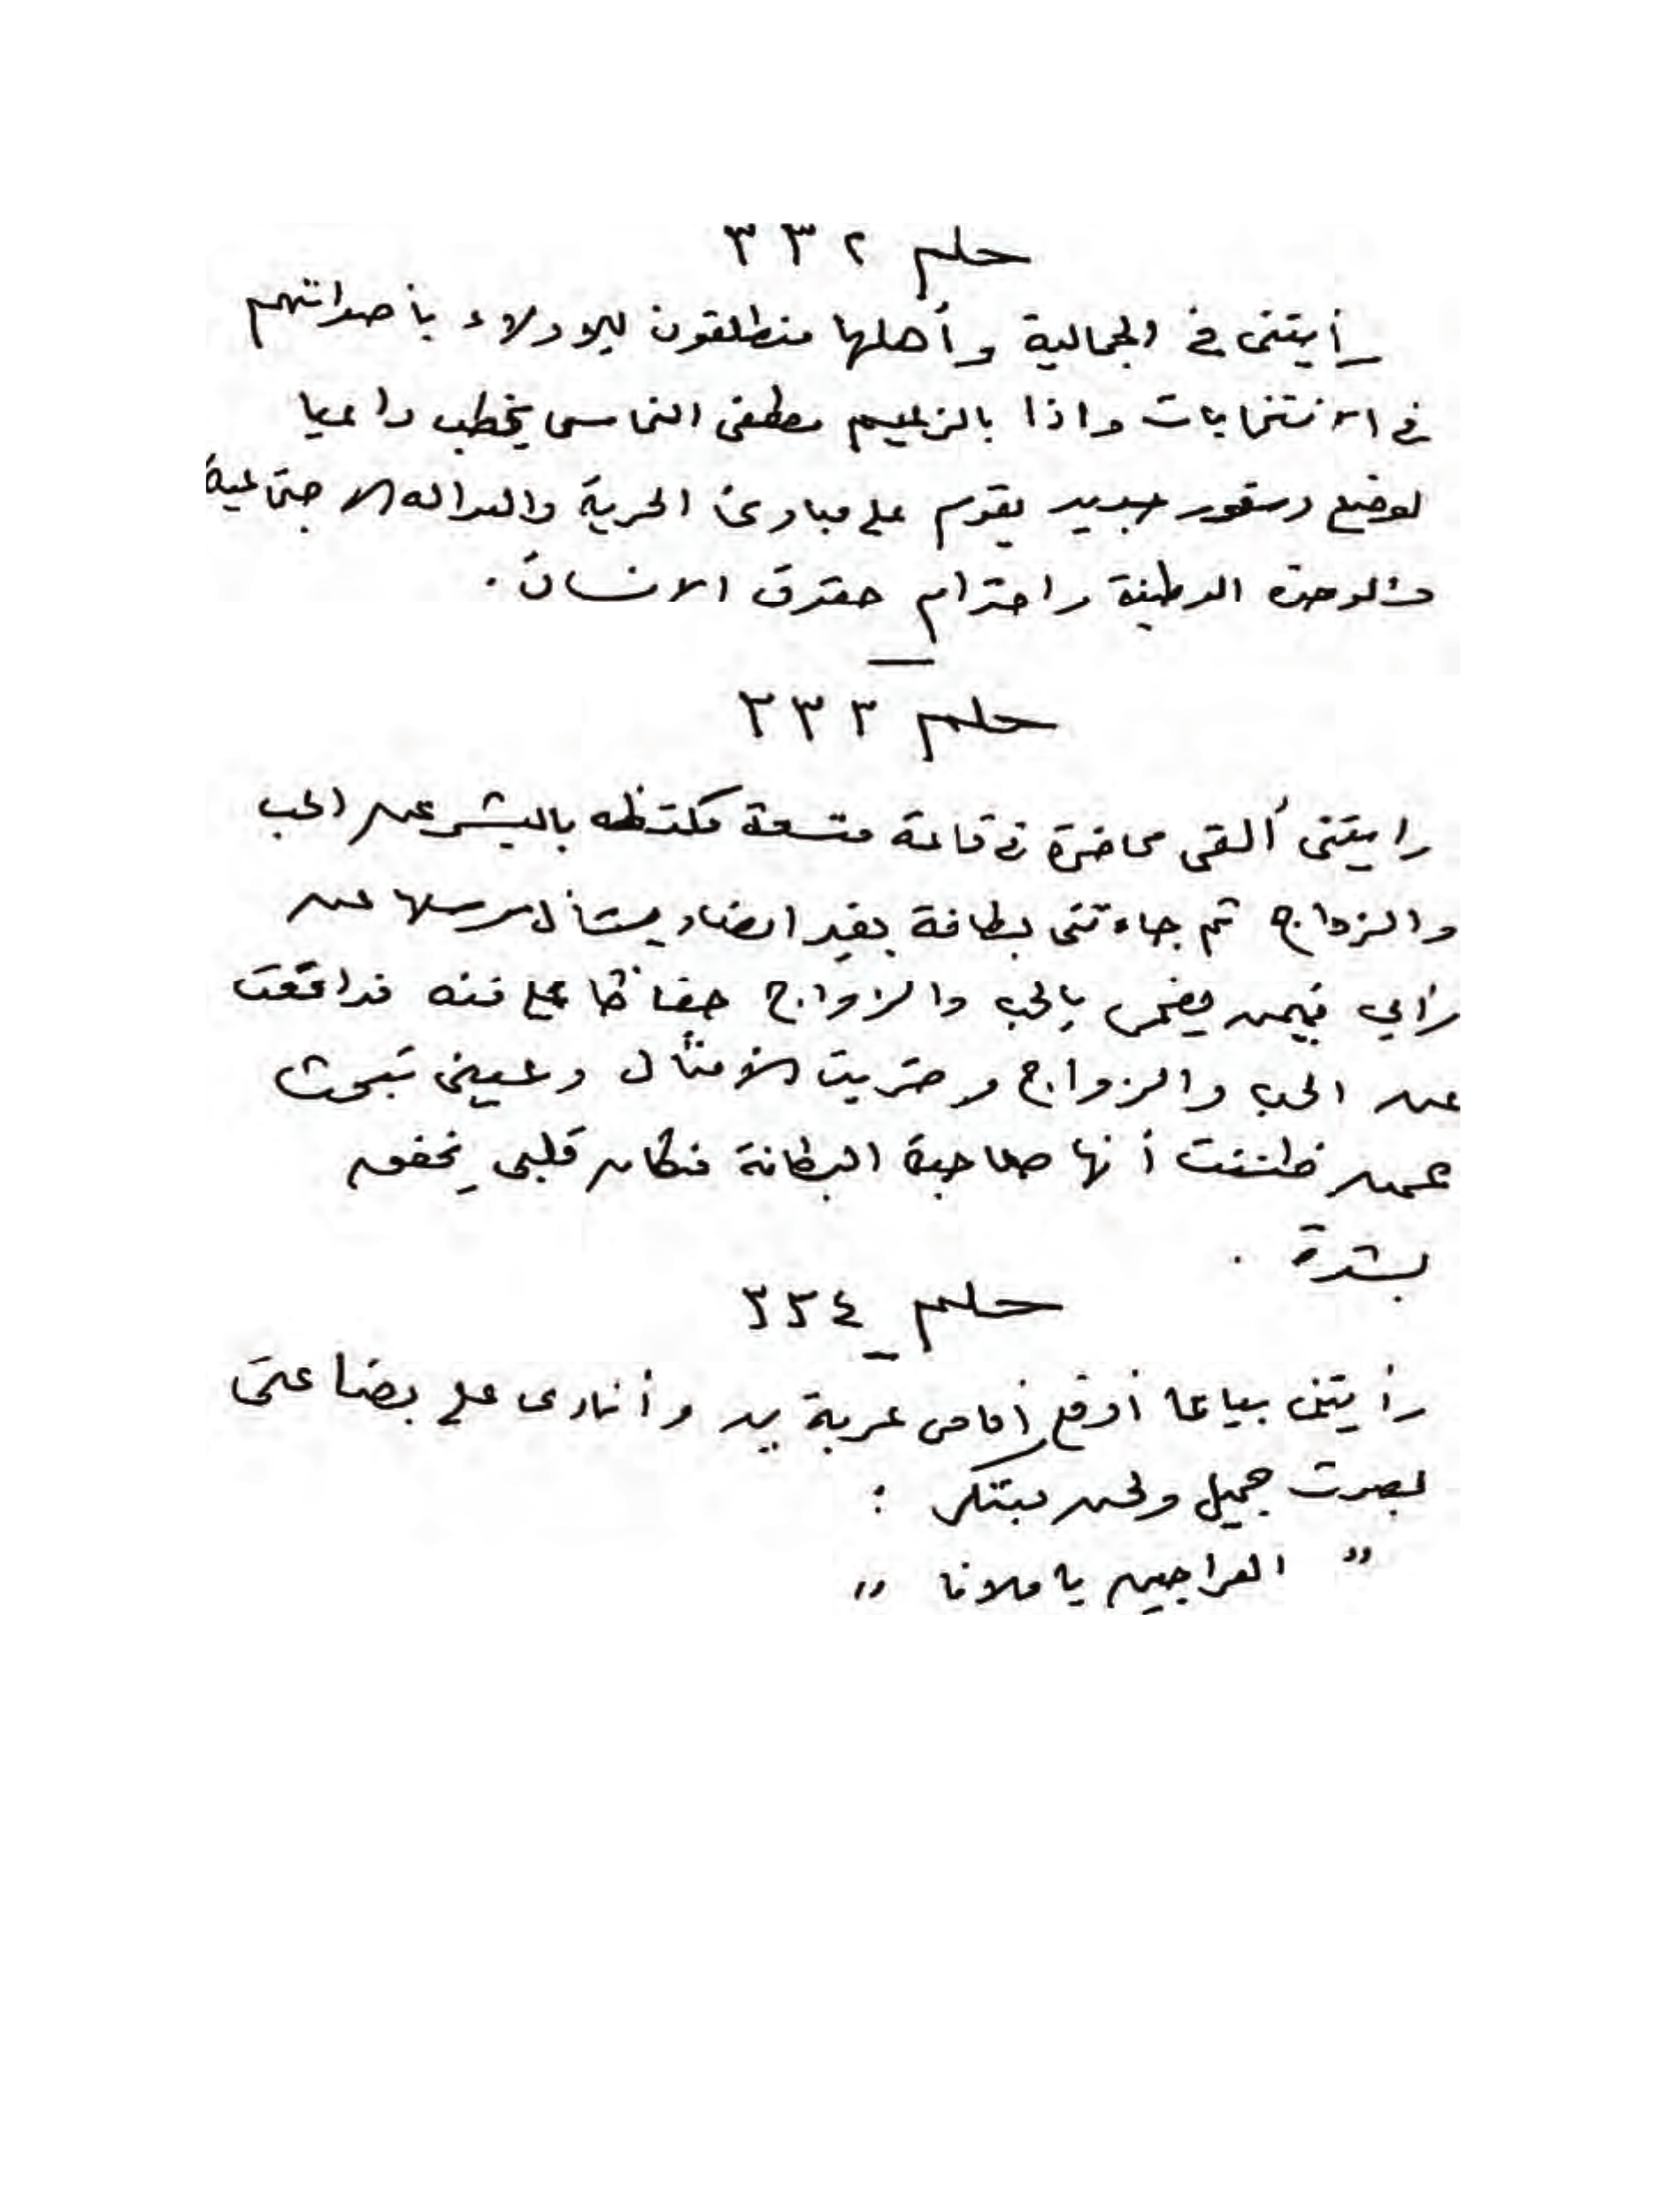 حلم ٣٣٢
رأيتنى فى الجمالية وأهلها منطلقون ليدلوا بأصواتهم
فى الانتخابات واذا بالزعيم مصطفى النحاس يخطب داعيا
لوضع دستور جديد يقوم على مبادئ الحرية والعداله الاجتماعية
والوحدة الوطنية واحترام حقوق الانسان .
حلم ٣٣٣
رايتنى ألقى محاضرة فى قاعة متسعة مكتظه بالبشر عن الحب
والزواج ثم جاءتنى بطاقة بغير امضاء يسأل مرسلها عن
رأيي فيمن يضحى بالحب والزواج حفاظا على فنه فدافعت
عن الحب والزواج وضربت الأمثال وعينى تبحث
عمن ظننت أنها صاحبة البطاقة فكان قلبى يخفق
بشدة .
حلم ٣٣٤
رأيتنى بياعا أدفع أمامى عربة يد وأنادى على بضاعتى
بصوت جميل ولحن مبتكر :
" العراجين يا ملانا "